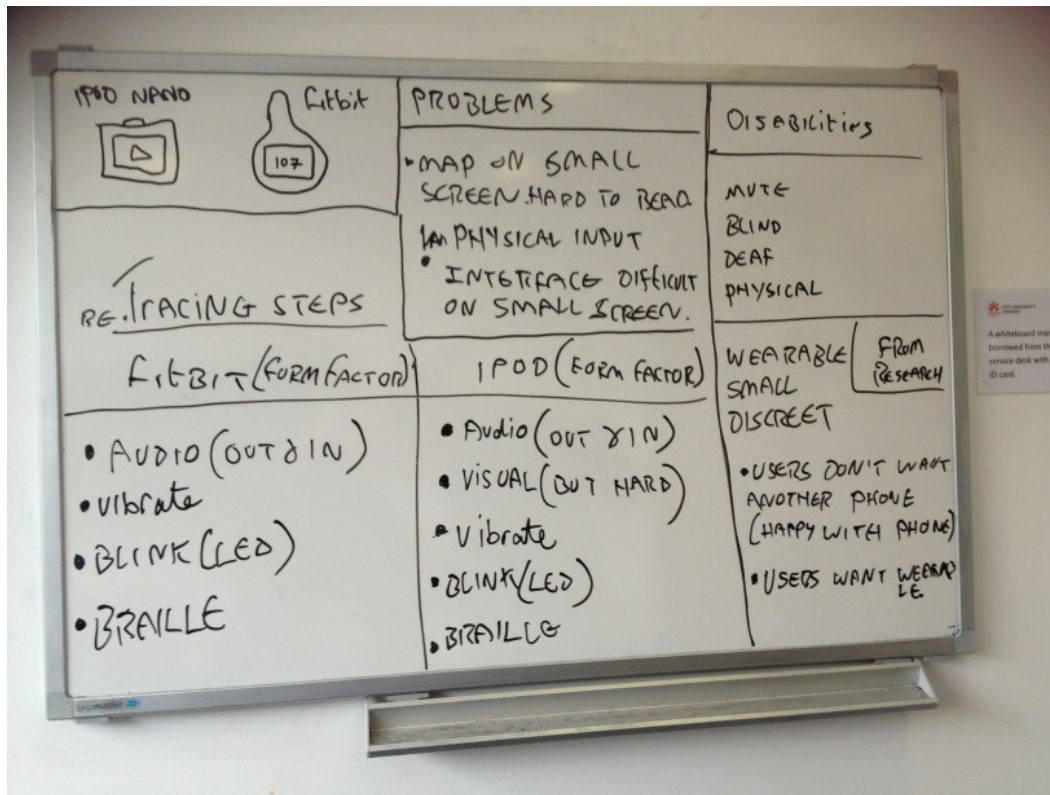 IPOD NANO
Fitbit
107
RE.TRACING STEPS
FitBIT (FORM FACTOR)
• AUDIO (OUT & IN)
• Vibrate
• BLINK (LED)
• BRAILLE
PROBLEMS
• MAP ON SMALL
SCREEN. HARD TO READ
PHYSICAL INPUT
• INTERFACE DIFFICULT
ON SMALL SCREEN.
IPOD (FORM FACTOR)
• Audio (OUT & IN)
• VISUAL (BUT HARD)
• Vibrate
• BLINK (LED)
• BRAILLE
DISABILITIES
MUTE
BLIND
DEAF
PHYSICAL
WEARABLE
SMALL
DISCREET
FROM
RESEARCH
• USERS DON'T WANT
ANOTHER PHONE
(HAPPY WITH PHONE)
• USERS WANT WEARAB
LE
legamaster
CITY UNIVERSITY
LONDON
A whiteboard mar
borrowed from th
service desk with
ID card.